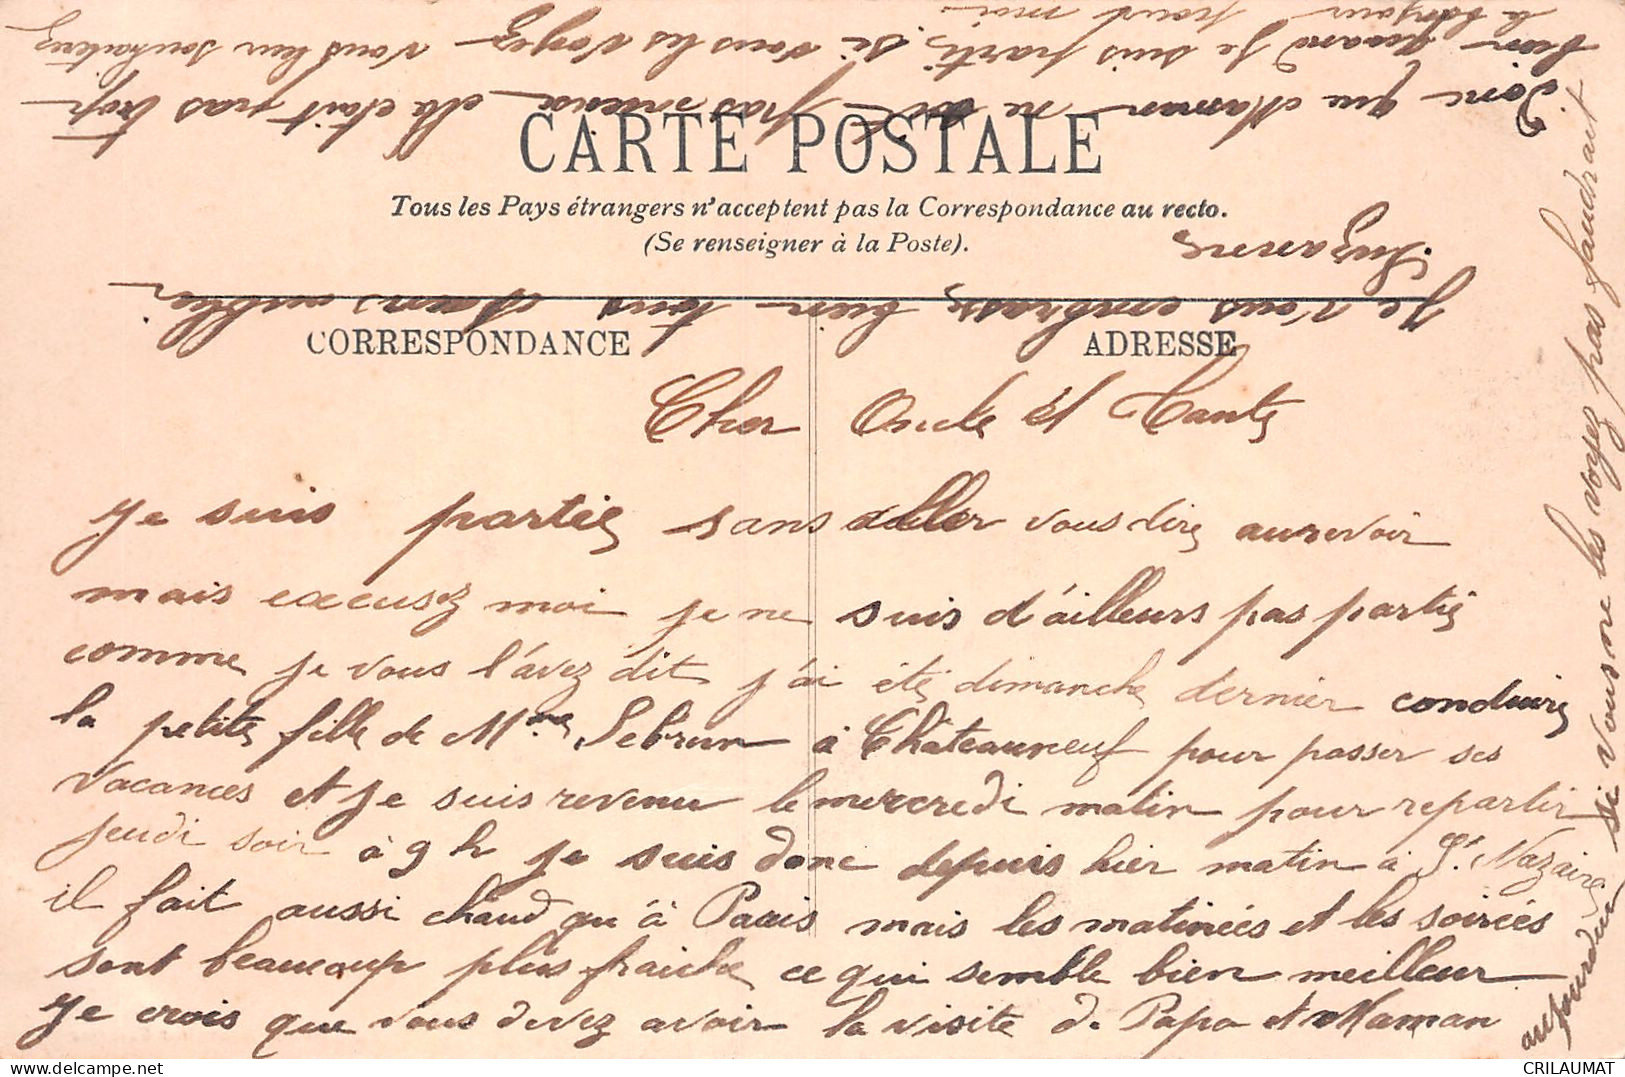 CARTE POSTALE
Tous les Pays étrangers n'acceptent pas la Correspondance au recto.
(Se renseigner à la Poste).
CORRESPONDANCE
ADRESSE
Cher Oncle et Tante
Je suis partie sans aller vous dire aurevoir
mais excusez moi je ne suis d'ailleurs pas partie
comme je vous l'avez dit j'ai été dimanche dernier conduire
la petite fille de Mme Lebrun à Châteauneuf pour passer ses
vacances et je suis revenu le mercredi matin pour repartir
jeudi soir à 9 h je suis donc depuis hier matin à St Nazaire
il fait aussi chaud qu'à Paris mais les matinées et les soirées
sont beaucoup plus fraiche ce qui semble bien meilleur
Je crois que vous devez avoir la visite de Papa et Maman
aujourd'hui si vous ne les voyez pas faudrait
Donc que Maman ne soit pas mieux elle etait pas trop
bien quand je suis partie, si vous les voyez vous leur souhaiterez
le bonjour pour moi
Je vous embrasse bien tous sans oublier
Suzanne
CRILAUMAT